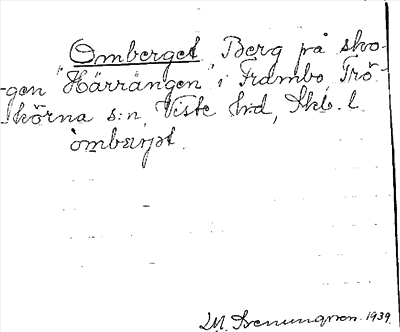 Omberget, Berg på sko-
gen "Härrängen" i Frambo, Trö-
skörna s:n, Viste hd, Skb. l.
òmbærjet.
M. 1939.